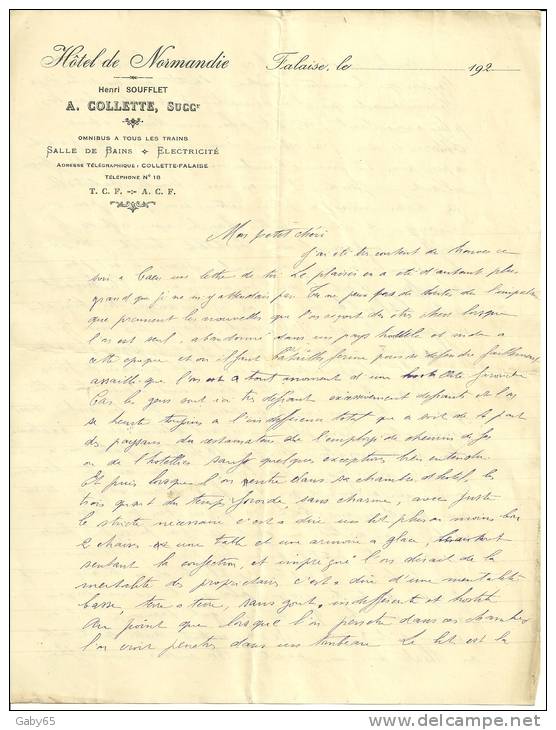 Hôtel de Normandie
Falaise, le 192
Henri SOUFFLET
A. COLLETTE, SUCCr
OMNIBUS A TOUS LES TRAINS
SALLE DE BAINS ELECTRICITÉ
ADRESSE TÉLÉGRAPHIQUE : COLLETTE-FALAISE
TÉLÉPHONE N° 18
T. C. F. A. C. F.
Mon petit chéri
J'ai été très content de trouver ce
soir a Caen une lettre de toi. Le plaisir en a été d'autant plus
grand que je ne m'y attendais pas. Tu ne peux pas te douter de
que prennent les nouvelles que l'on reçoit des êtres chers lorsque
l'on est seul, abandonné dans un pays hostile et
cette epoque et on
assaille que l'on est a tout moment d'une
Car les gens sont ici très defiant excessivement defiants et l'on
se heurte toujours a l'indifférence total que ce soit de la part
des paysans du restaurateur de l'employé de chemin de fer
ou de l'hotellier sauf quelques exceptions bien entendu
Et puis lorsque l'on rentre dans sa chambre d'hotel, les
trois quart du temps froide, sans charme, avec juste
le stricte nécessaire c'est a dire un lit plus ou moins bon
2 chaises une table et une armoire a glace,
sentant la confection, et impregné l'on dirait de la
mentalité des proprietaires c'est a dire d'une mentalité
basse, terre a terre, sans gout, indifférente et hostile
Au point que lorsque l'on penetre dans ces chambres
l'on croit penetrer dans un tombeau Le lit est la
Gaby65